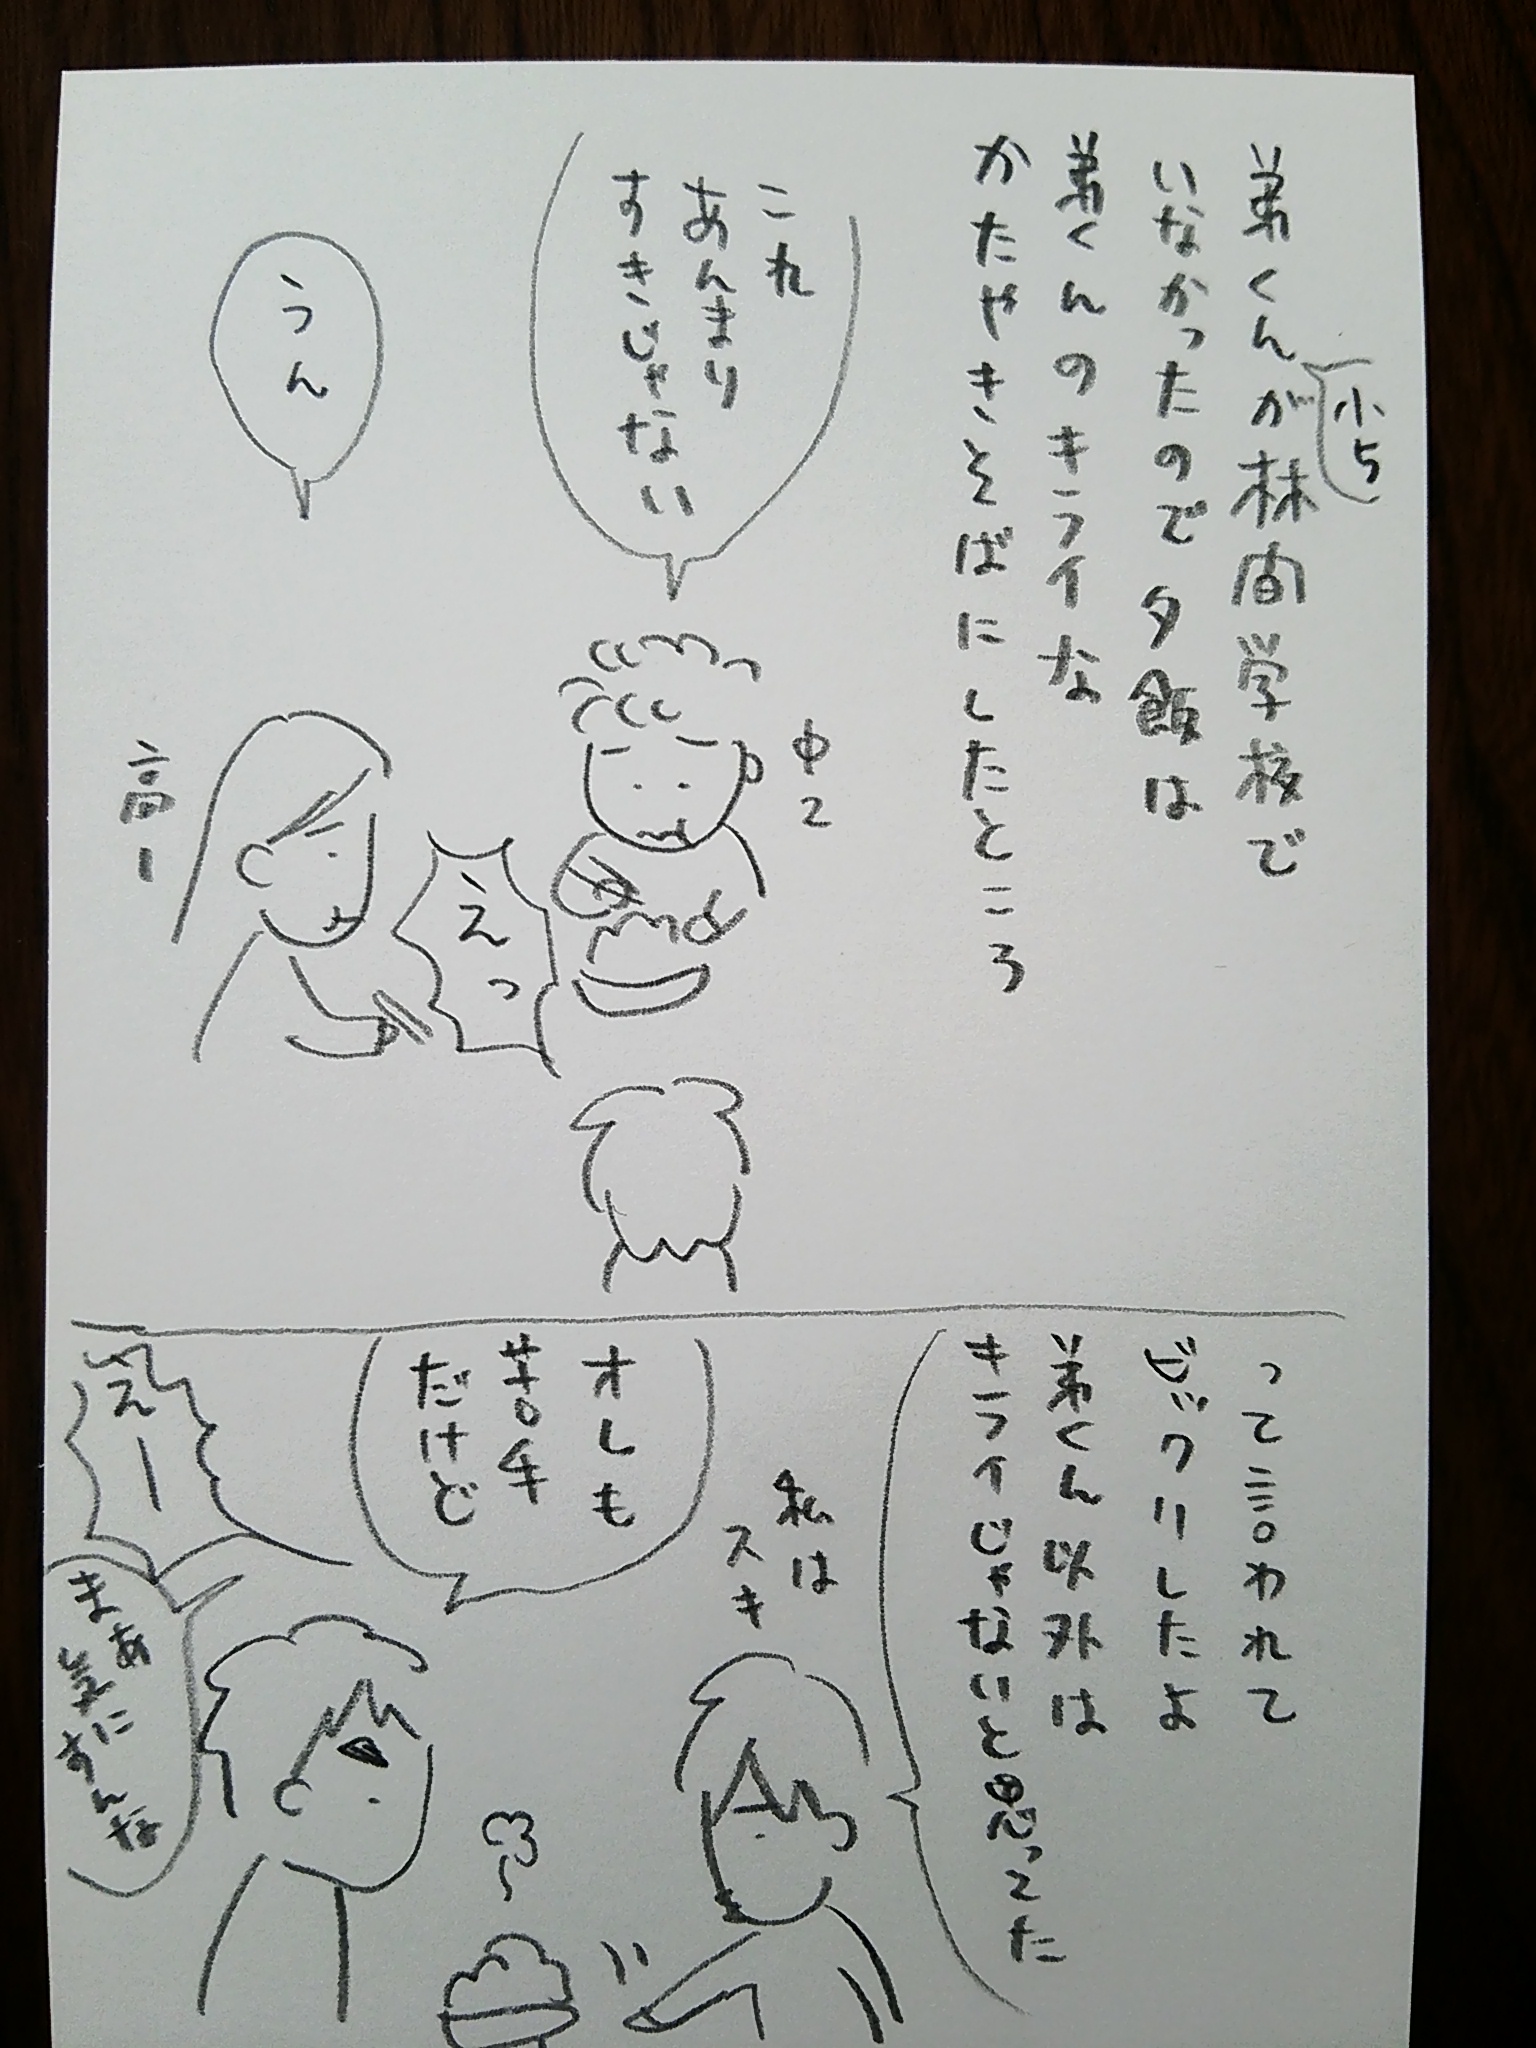 弟くんが林間学校で
小5
いなかったので夕飯は
弟くんのキライな
かたやきそばにしたところ
これ
あんまり
すきじゃない
中2
うん
高1
えっ
って言われて
ビックリしたよ
弟くん以外は
キライじゃないと思ってた
私は
スキ
オレも
苦手
だけど
えー
まあ
気にすんな